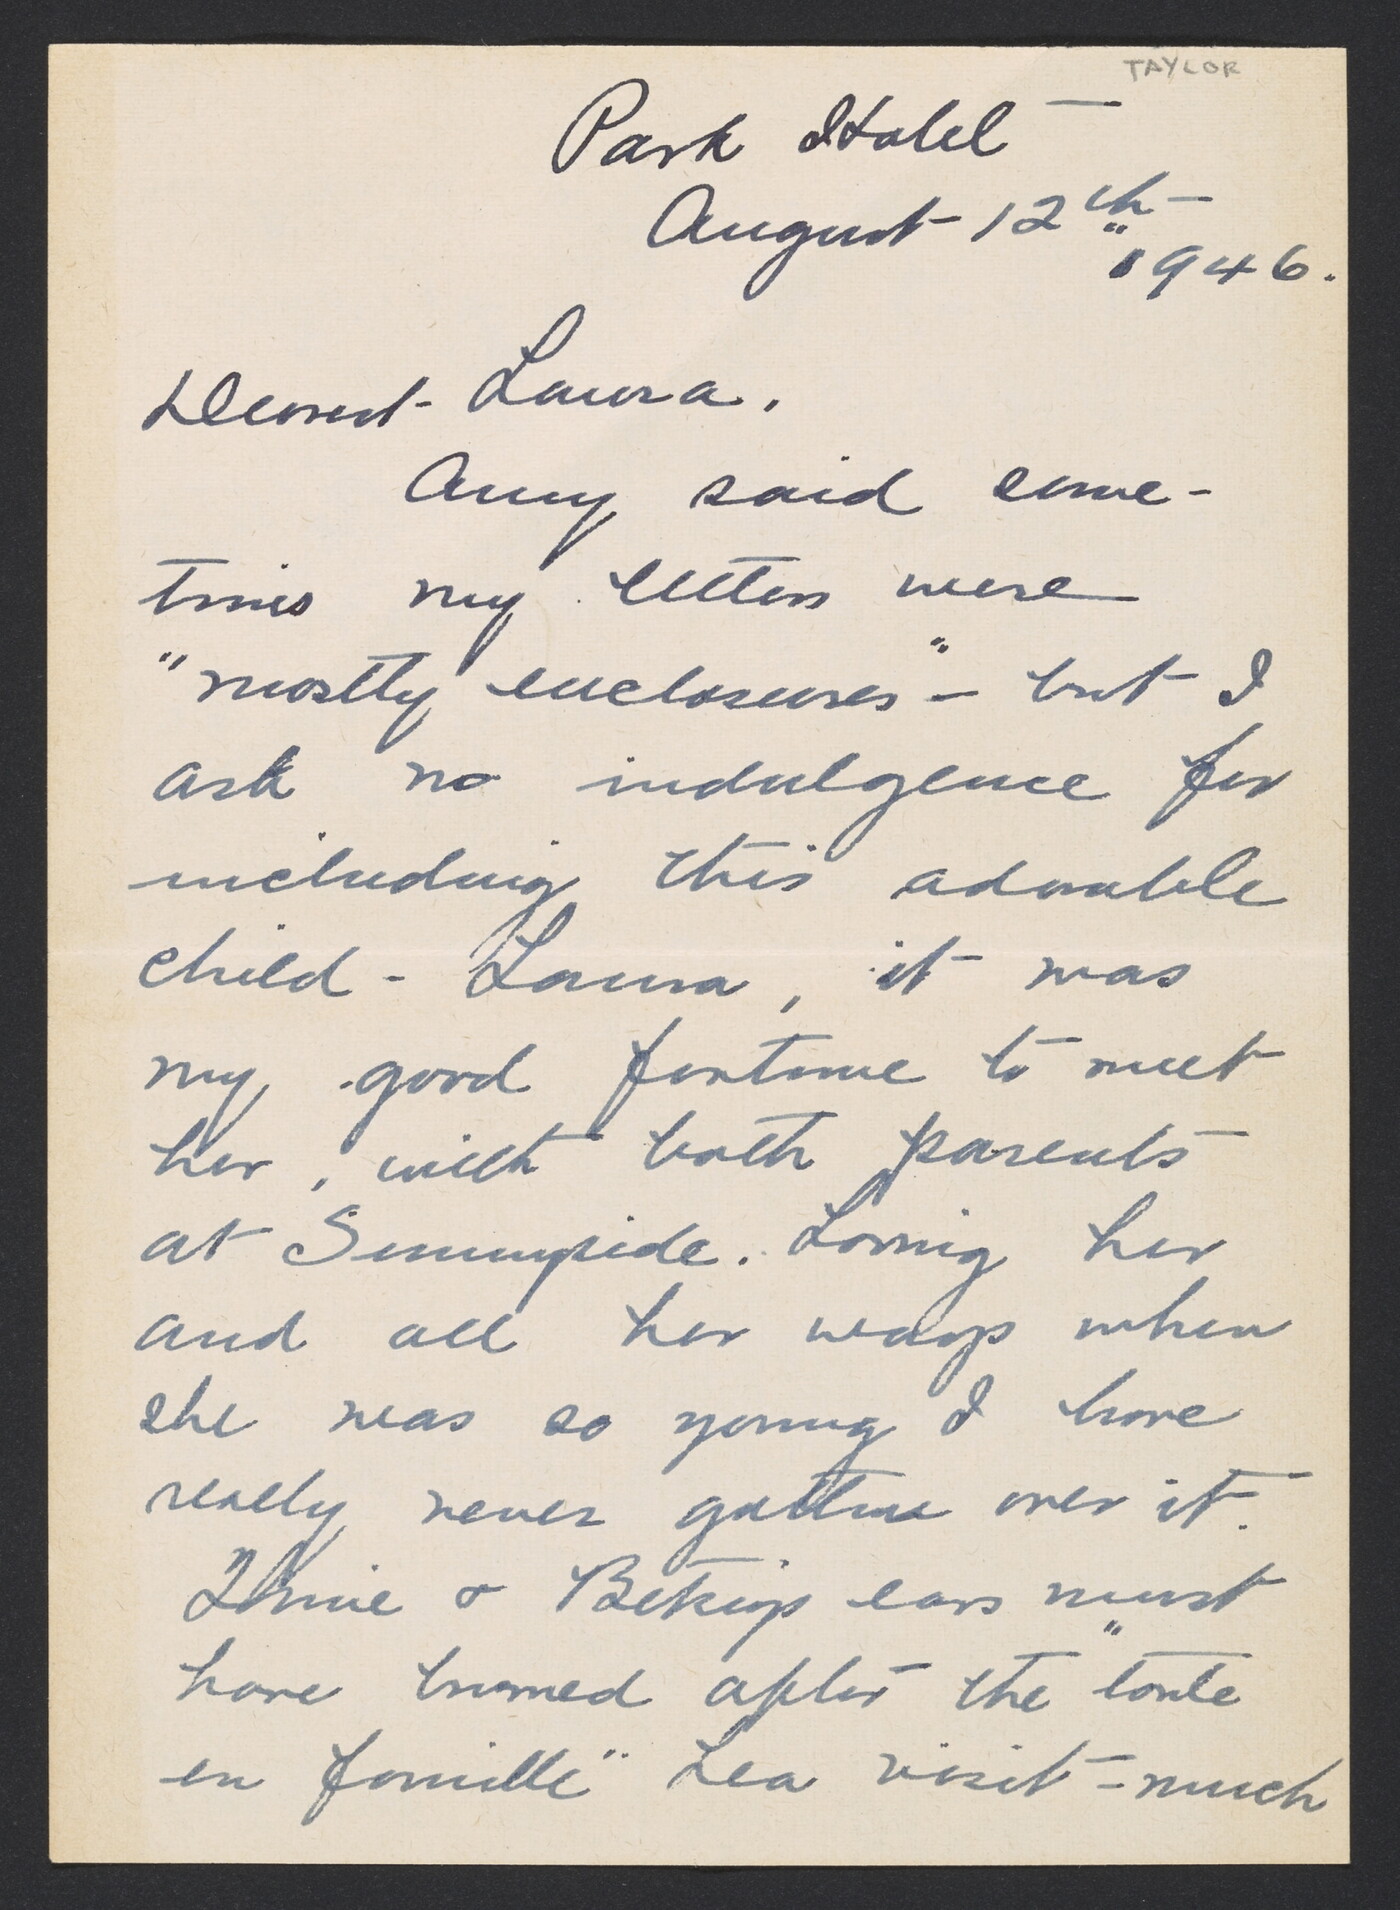 TAYLOR
Park Hotel —
August 12th —
1946.
Dearest Laura.
Amy said some-
times my letters were
"mostly enclosures" — but I
ask no indulgence for
including this adorable
child - Laura, it was
my good fortune to meet
her, with both parents
at Sunnyside. Loving her
and all her ways when
she was so young I have
really never gotten over it.
& ears must
have burned after the "toute
en famille" Lea visit — much